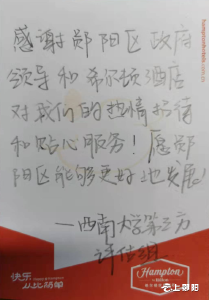 感谢郧阳区政府
领导和希尔顿酒店
对我们的热情招待
和贴心服务！愿郧
阳区能够更好地发展！
——西南大学第三方
评估组
快乐
从此随即
Hampton
云上郧阳